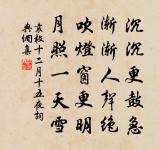 沉沉更鼓急
漸漸人聲絕
吹燈窗更明
月照一天雪
袁枚十二月十五夜詞
典網集